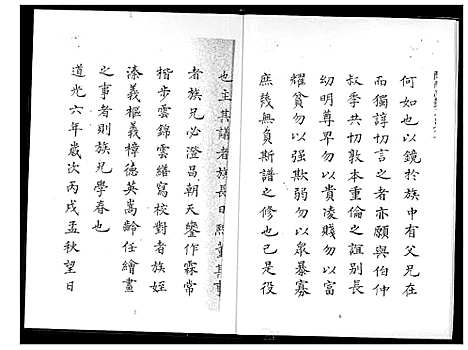 何如也以鏡於族中有父兄在
而獨諄切言之者亦願與伯仲
叔季共切敦本重倫之誼別長
幼明尊卑勿以貴陵賤勿以富
耀貧勿以强欺弱勿以衆暴寡
庶幾無負斯譜之修也已是役
也主其議者族長日熙董其事
者族兄必澄昌朝天鑾作霖常
楷步雲錦雲繕寫校對者族姪
溱義樞義樟德英嵩齡任繪畫
之事者則族兄學春也
道光六年歲次丙戌孟秋望日